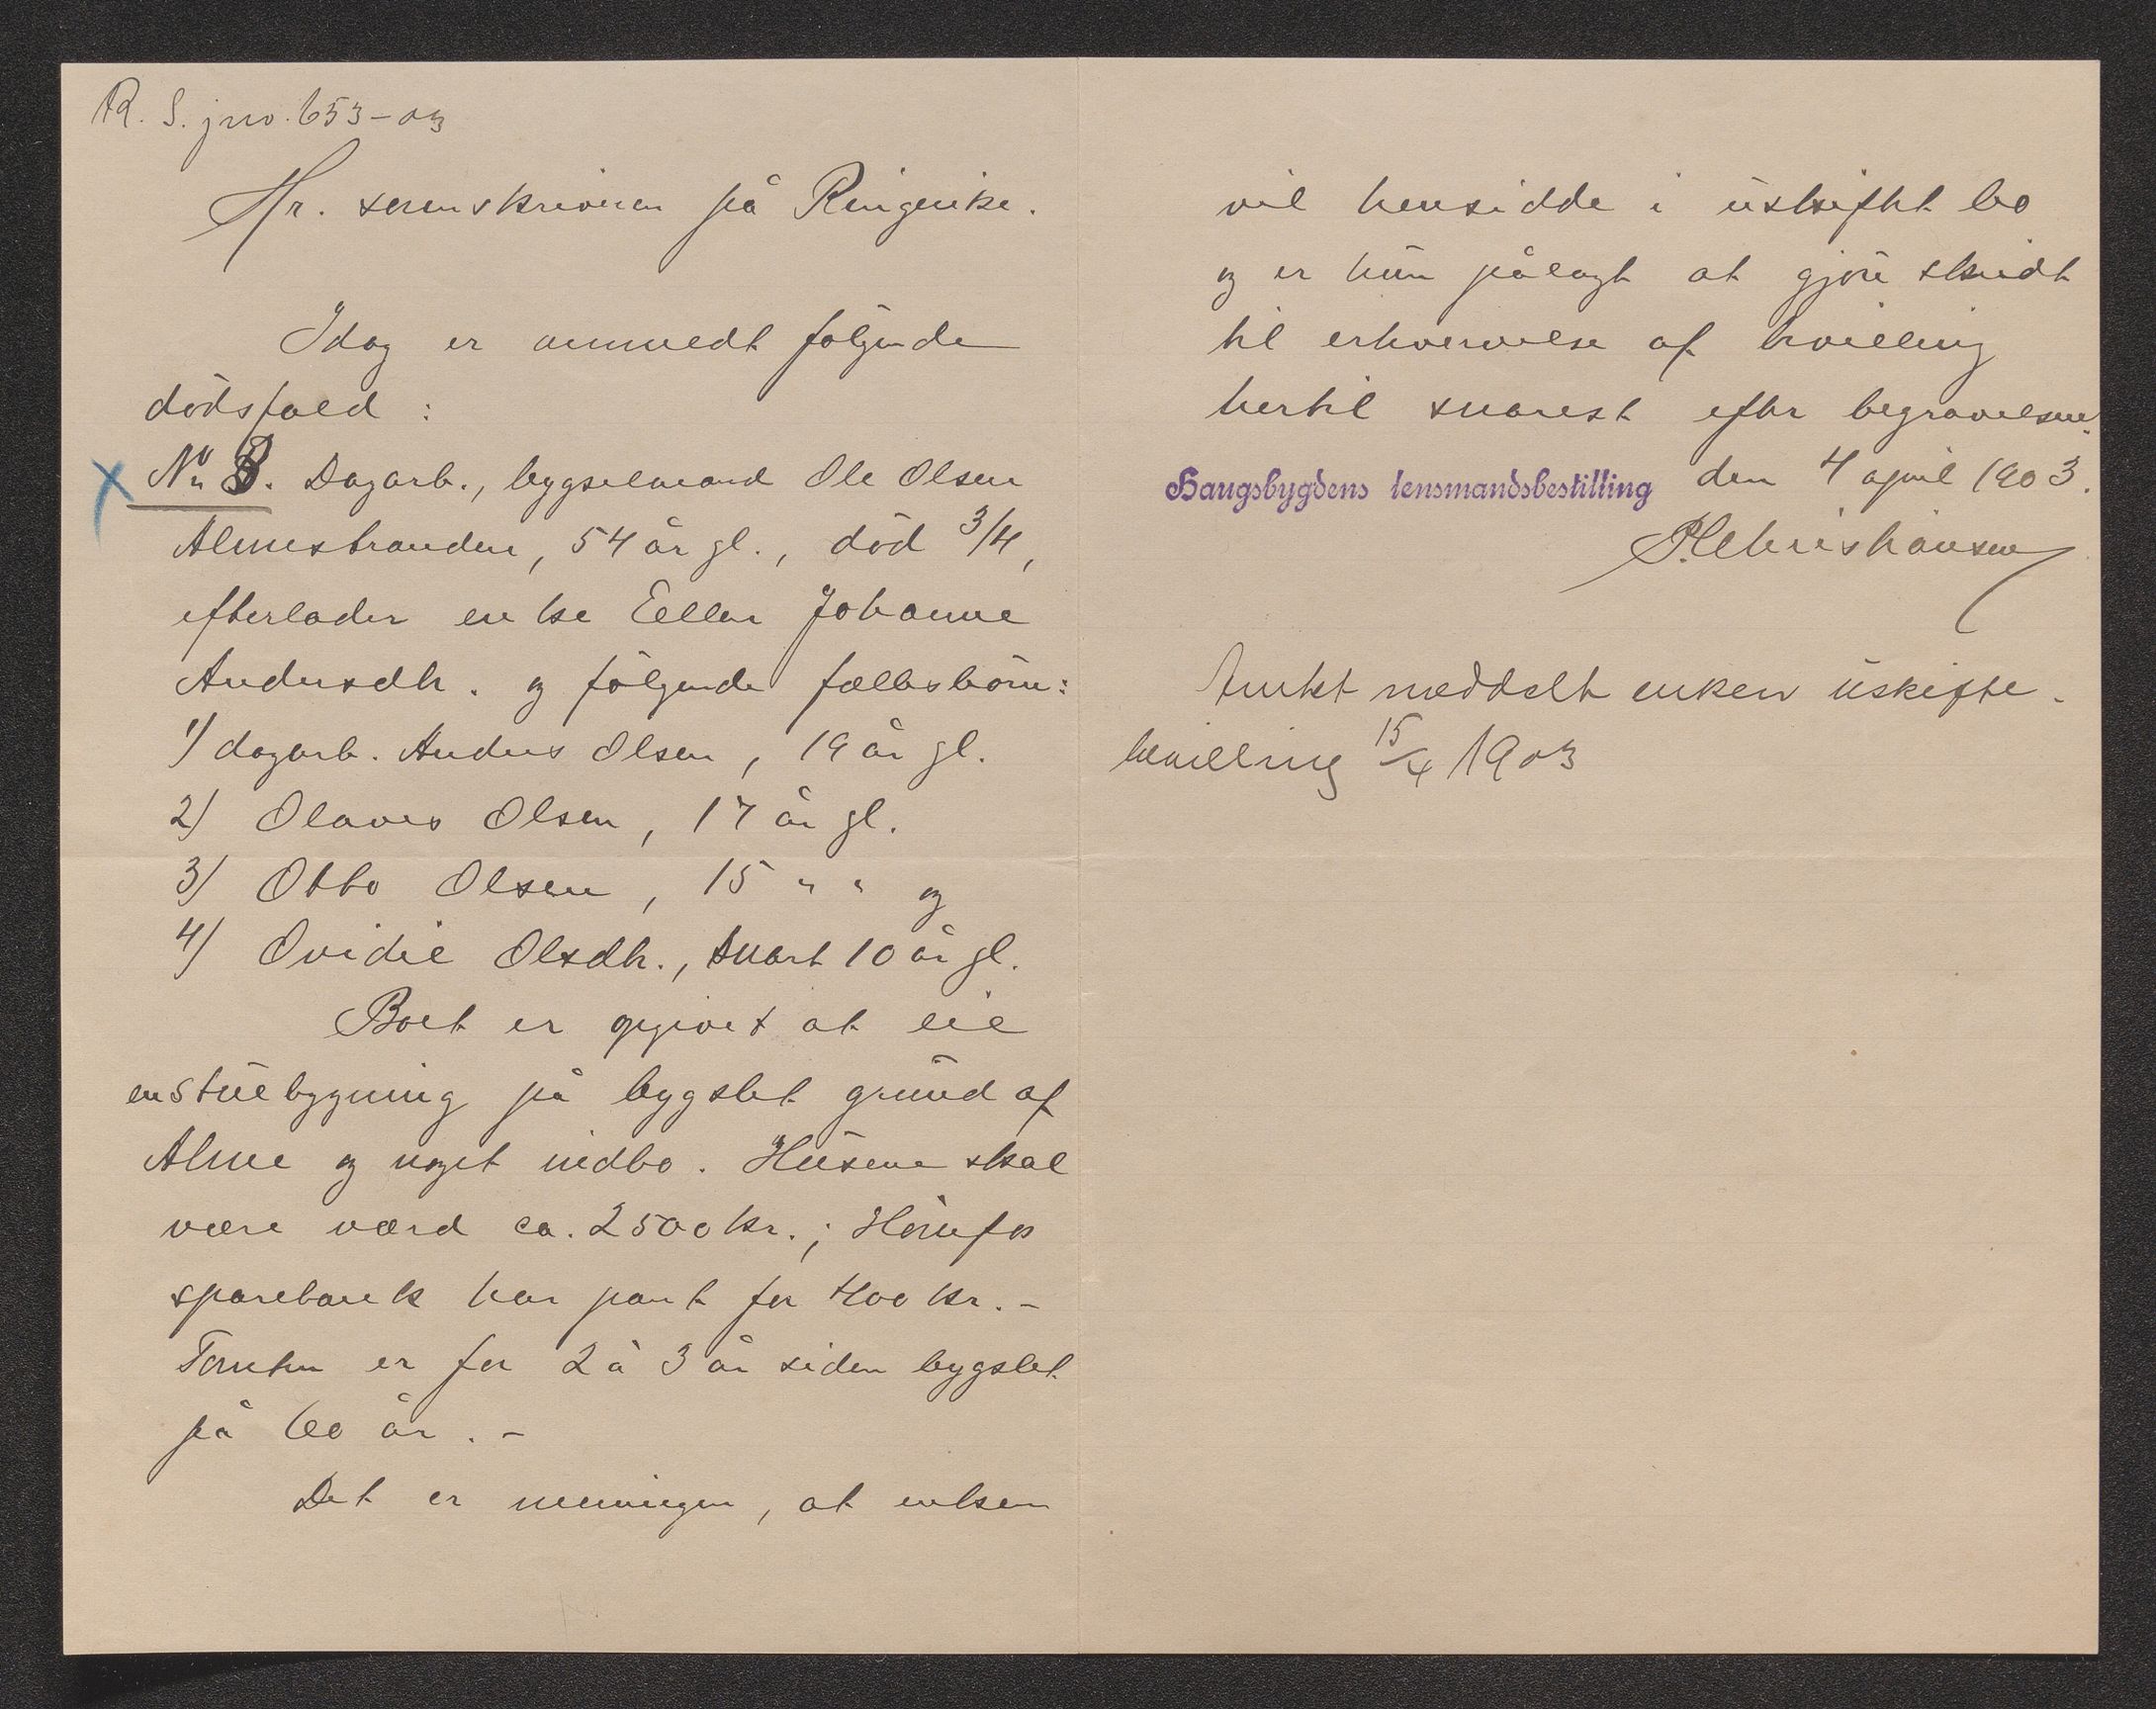 R. S. jno. 653-03
Hr. sorenskriveren på Ringerike.
Idag er anmeldt følgende
dödsfald:
No 8. Dagarb., bygselmand Ole Olsen
Almestranden, 54 år gl., död 3/4,
efterlader enke Ellen Johanne
Andersdtr. og følgende fællesbörn:
1) dagarb. Anders Olsen, 19 år gl.
2) Olaves Olsen, 17 år gl.
3) Otto Olsen, 15 " " og
4) Ovidie Olsdtr., snart 10 år gl.
Boet er opgivet at eie
en stuebygning på bygslet grund af
Alme og noget indbo. Husene skal
være værd ca. 2500 kr.; Hönefos
sparebank har pant for 400 kr. -
Tomten er for 2 à 3 år siden bygslet
på 60 år. -
Det er meningen, at enken
vil hensidde i uskiftet bo
og er hun pålagt at gjöre skridt
til erhvervelse af bevilling
hertil snarest efter begravelsen.
Haugsbygdens lensmandsbestilling den 4 april 1903.
P. Christiansen
Amtet meddelt enken uskifte-
bevilling 15/4 1903